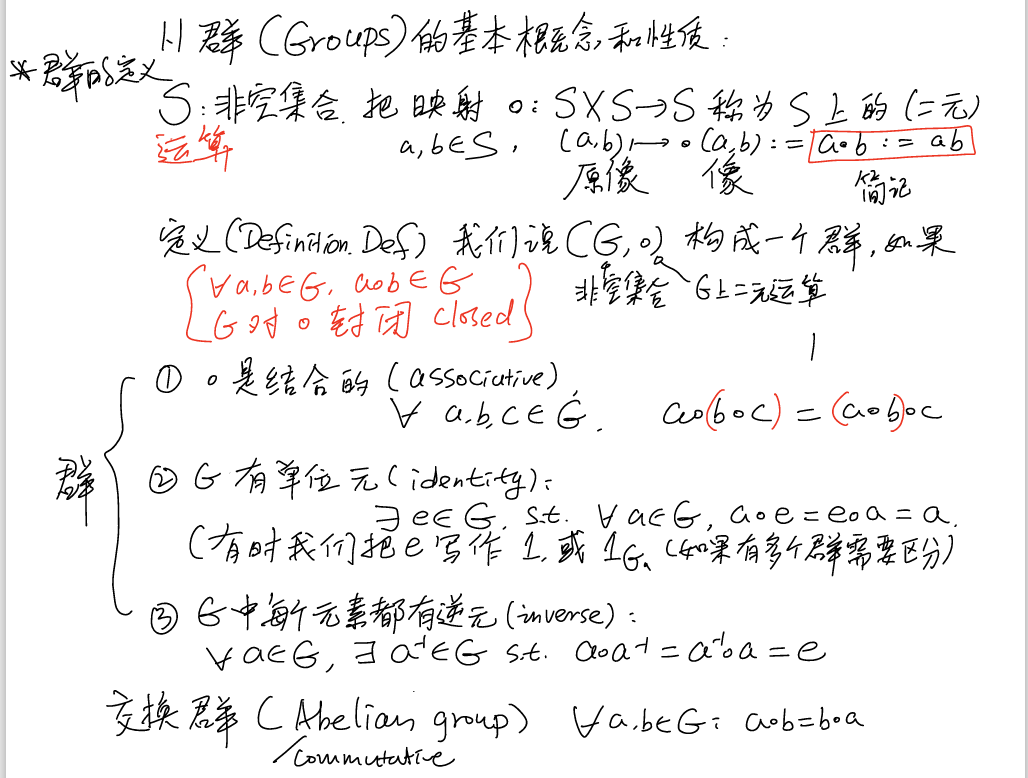 1.1 群 (Groups) 的基本概念和性质:
* 群的定义
S: 非空集合. 把映射 ∘: S×S→S 称为 S 上的 (二元)
运算 a,b∈S, (a,b) ⟼ ∘(a,b) := a∘b := ab
原像 像 简记
定义 (Definition. Def) 我们说 (G,∘) 构成一个群, 如果
非空集合 G上二元运算
{∀a,b∈G, a∘b∈G
G对∘封闭 closed}
① ∘是结合的 (associative)
∀ a,b,c∈G. a∘(b∘c) = (a∘b)∘c
群
② G 有单位元 (identity):
∃ e∈G, s.t. ∀a∈G, a∘e=e∘a=a.
(有时我们把e写作 1, 或 1_G. (如果有多个群需要区分)
③ G中每个元素都有逆元 (inverse):
∀ a∈G, ∃ a⁻¹∈G s.t. a∘a⁻¹=a⁻¹∘a=e
交换群 (Abelian group) ∀a,b∈G: a∘b=b∘a
/commutative